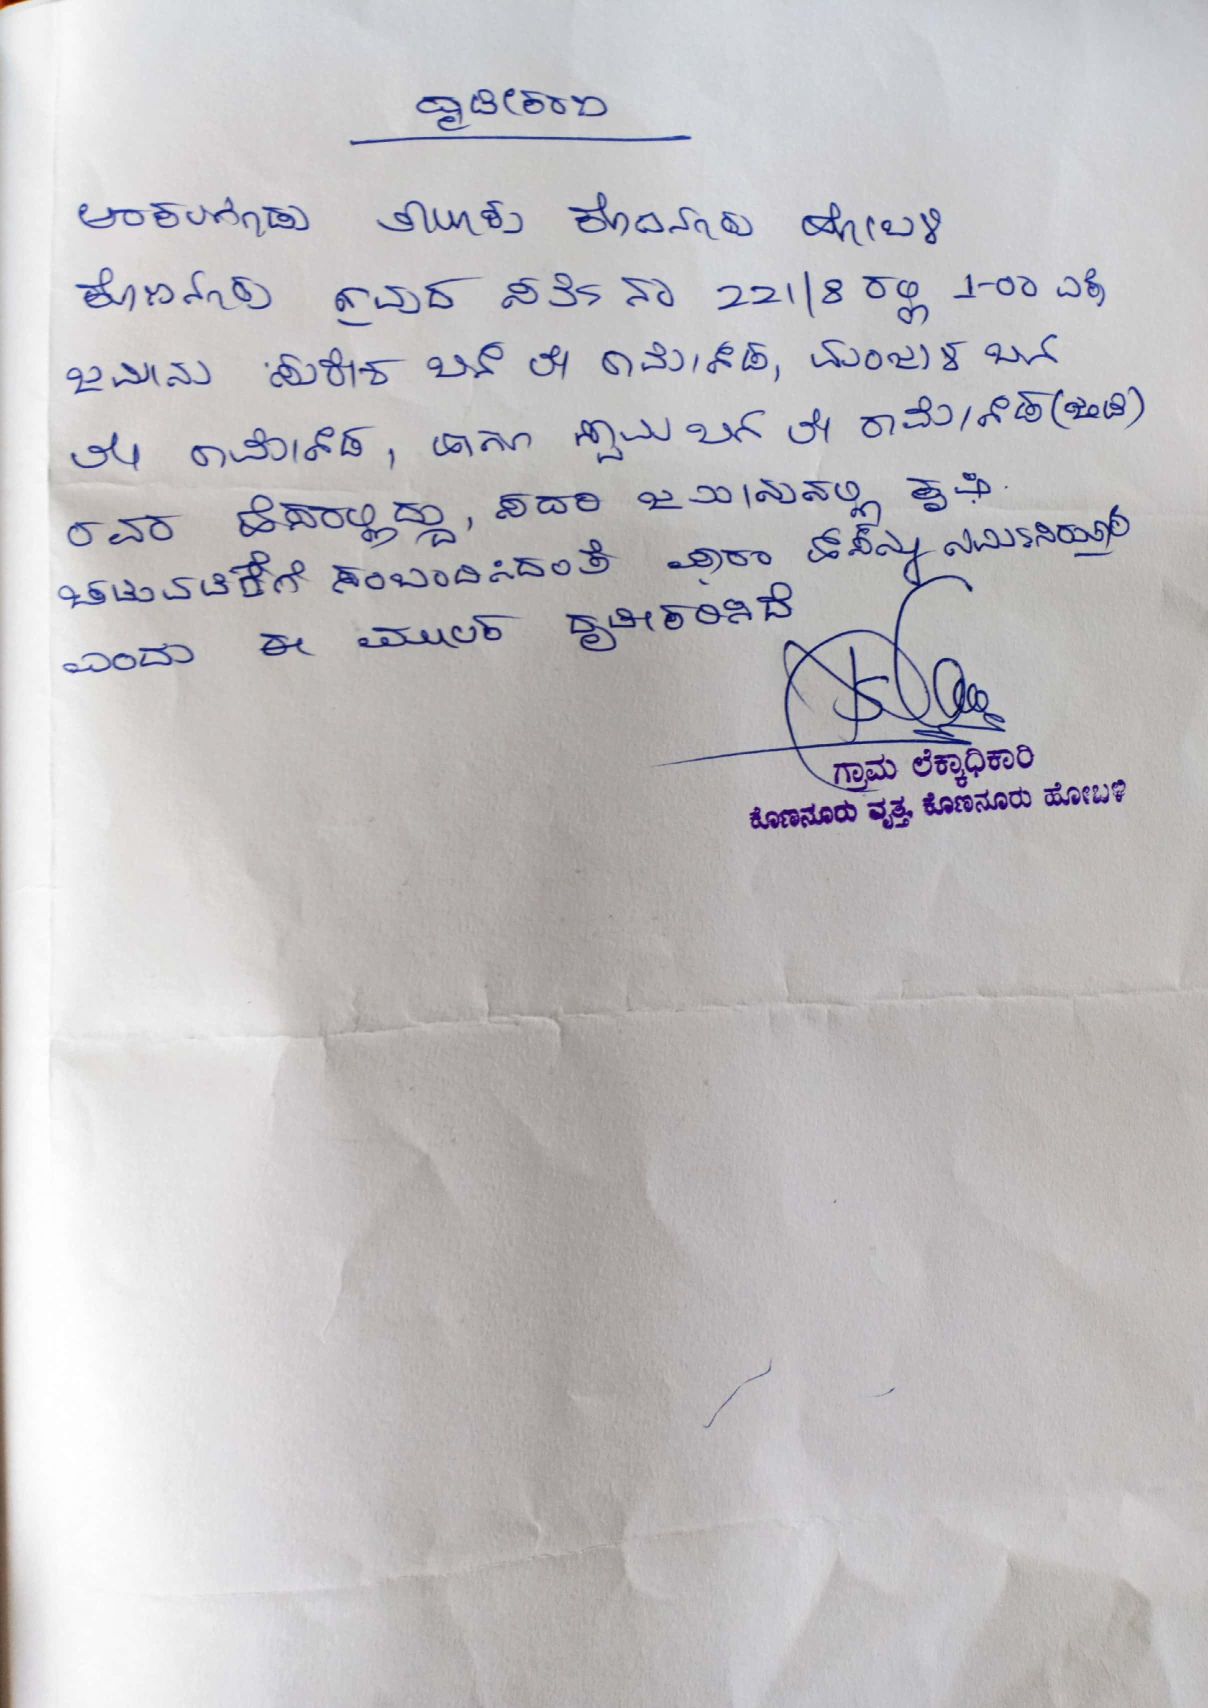 ದೃಢೀಕರಣ
ಅರಕಲಗೂಡು ತಾಲ್ಲೂಕು ಕೊಣನೂರು ಹೋಬಳಿ
ಕೊಣನೂರು ಗ್ರಾಮದ ಸರ್ವೆ ನಂ 221/8 ರಲ್ಲಿ 1-00 ಎಕರೆ
ಜಮೀನು ಬಿನ್ ಲೇ ರಾಮೇಗೌಡ, ಮಂಜುಳ ಬಿನ್
ಲೇ ರಾಮೇಗೌಡ, ಹಾಗೂ ಬಿನ್ ಲೇ ರಾಮೇಗೌಡ (ಜಂಟಿ)
ರವರ ಹೆಸರಲ್ಲಿದ್ದು, ಸದರಿ ಜಮೀನಿನಲ್ಲಿ ಕೃಷಿ
ಚಟುವಟಿಕೆಗೆ ಸಂಬಂಧಿಸಿದಂತೆ
ಎಂದು ಈ ಮೂಲಕ ದೃಢೀಕರಿಸಿದೆ
ಗ್ರಾಮ ಲೆಕ್ಕಾಧಿಕಾರಿ
ಕೊಣನೂರು ವೃತ್ತ, ಕೊಣನೂರು ಹೋಬಳಿ